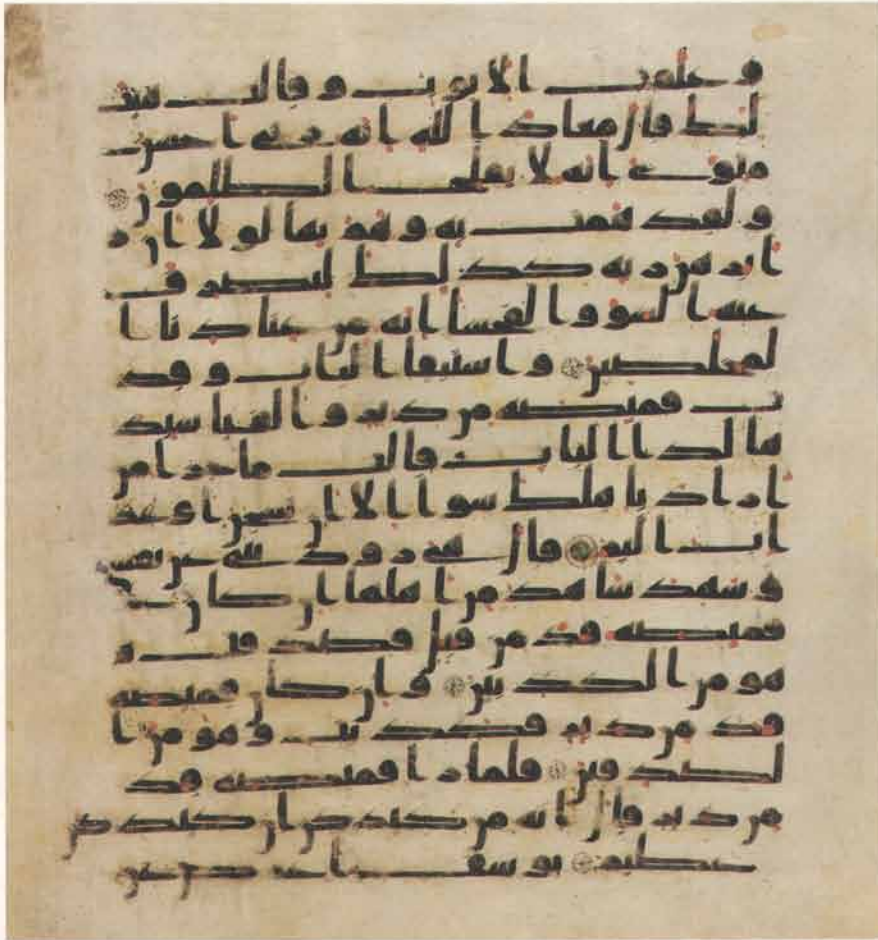 و غلقت الابوب و قالت هيت
لك قال معاذ الله انه ربى احسن
مثوى انه لا يفلح الظلمون
و لقد همت به و هم بها لو لا ان ر
ا برهن ربه كذلك لنصرف
عنه السو و الفحشا انه من عبادنا ا
لمخلصين و استبقا الباب و قد
ت قميصه من دبر و الفيا سيد
ها لدا الباب قالت ما جزا من
اراد باهلك سوا الا ان يسجن او عذ
اب اليم قال هى رودتنى عن نفسى
و شهد شاهد من اهلها ان كان
قميصه قد من قبل فصدقت و
هو من الكذبين و ان كان قميصه
قد من دبر فكذبت و هو من ا
لصدقين فلما را قميصه قد
من دبر قال انه من كيدكن ان كيدكن
عظيم يوسف اعرض عن